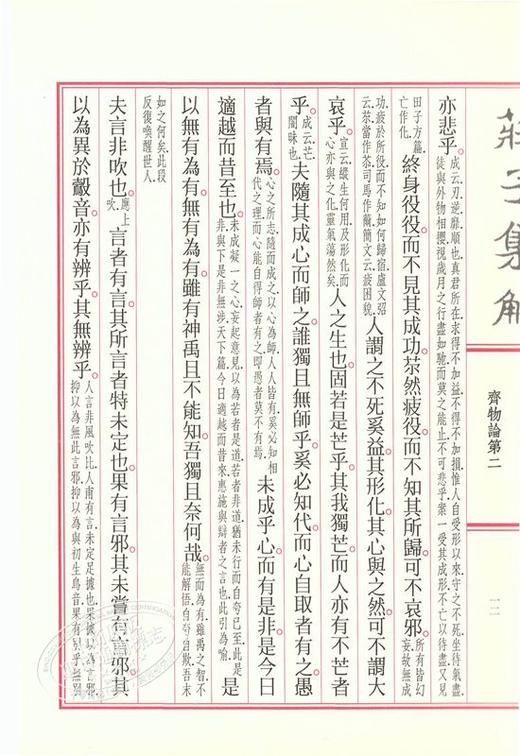 莊子集解
齊物論第二
一二
亦悲乎。成云刃逆靡順也真君所在求得不加益不得不加損惟人自受形以來守之不死坐待氣盡
徒與外物相攖視歲月之行盡如馳而莫之能止不可悲乎案一受其成形不亡以待盡又見
田子方篇
亡作化
終身役役而不見其成功。苶然疲役而不知其所歸。可不哀邪。所有皆幻
妄故無成
功疲於所役而不知如何歸宿盧文弨
云苶當作苶司馬作薾簡文云疲困貌
人謂之不死奚益。其形化其心與之然。可不謂大
哀乎。宣云縱生何用及形化而
心亦與之化靈氣蕩然矣
人之生也。固若是芒乎。其我獨芒而人亦有不芒者
乎。成云芒
闇昧也
夫隨其成心而師之。誰獨且無師乎。奚必知代而心自取者有之。愚
者與有焉。心之所志隨而成之以心為師人人皆有奚必知相
代之理而心能自得師者有之即愚者莫不有焉
未成乎心而有是非。是今日
適越而昔至也。未成凝一之心妄起意見以為若者是道若者非道猶未行而自夸已至此是
非與下是非無涉天下篇今日適越而昔來惠施與辯者之言也此引為喻
是
以無有為有。無有為有。雖有神禹且不能知。吾獨且奈何哉。無而為有雖禹之智不
能解悟自夸自欺吾末
如之何矣此段
反復喚醒世人
夫言非吹也。應上
吹
言者有言。其所言者特未定也。果有言邪。其未嘗有言邪。其
以為異於鷇音。亦有辨乎。其無辨乎。人言非風吹比人甫有言未定足據也果據以為言邪
抑以為無此言邪抑以為與初生鳥音果有別乎無別